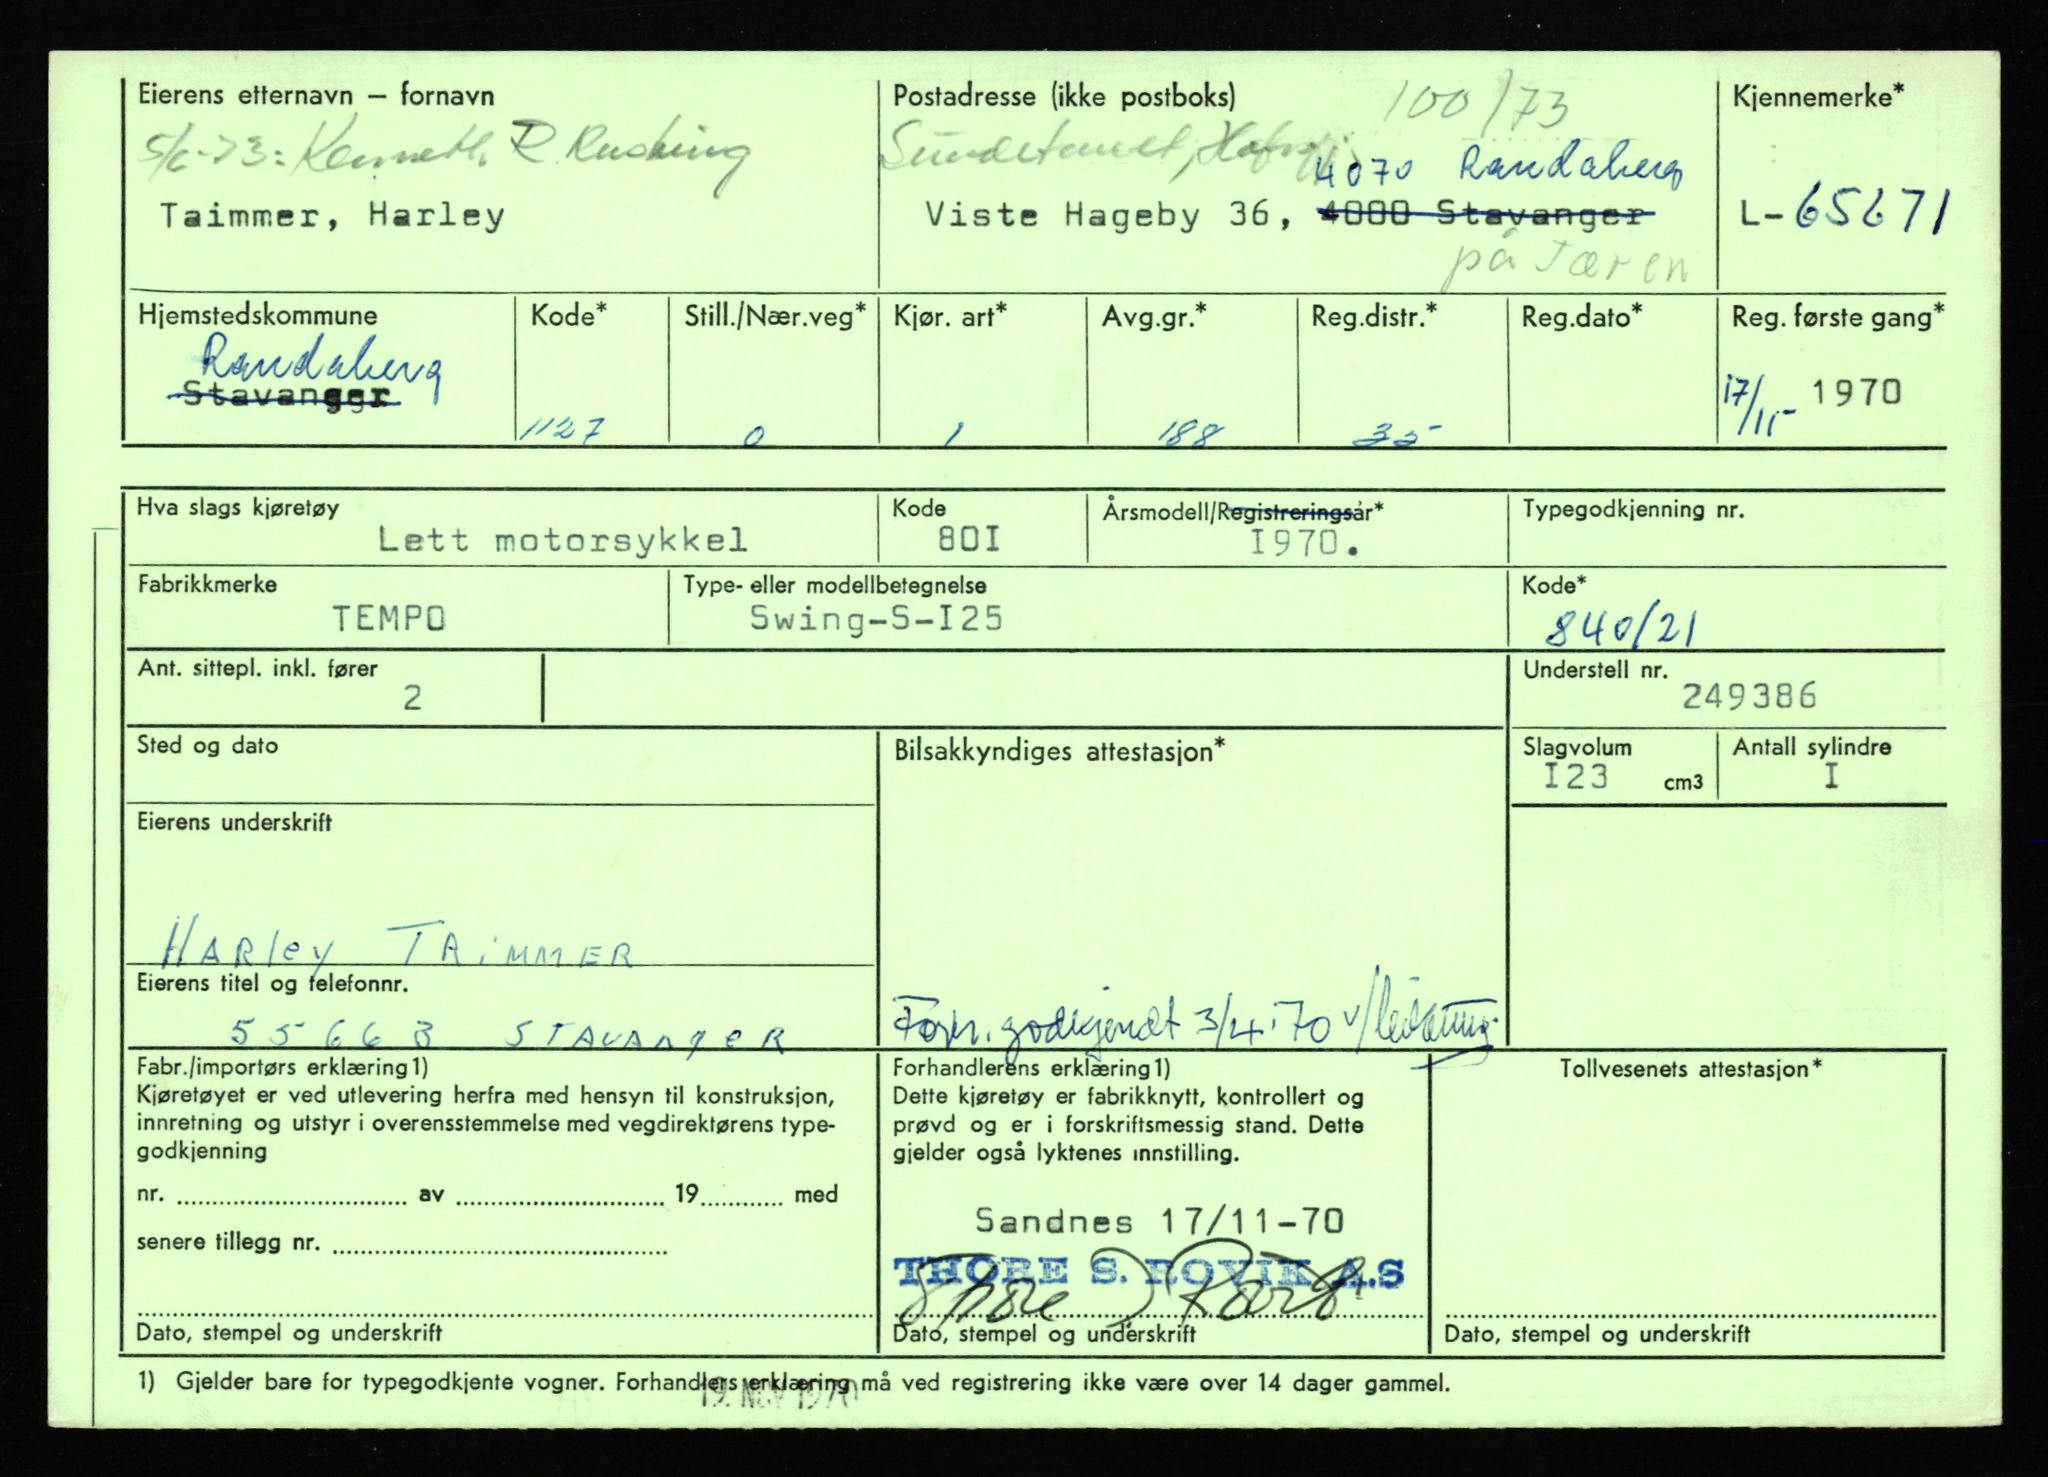 Eierens etternavn – fornavn
Postadresse (ikke postboks)
100/73
Kjennemerke*
Kenneth R. Rushing
4070 Randaberg
Taimmer, Harley
Viste Hageby 36, 4000 Stavanger
L-65671
på Jæren
Hjemstedskommune
Kode*
Still./Nær.veg*
Kjør. art*
Avg.gr.*
Reg.distr.*
Reg.dato*
Reg. første gang*
Randaberg
Stavanger
1127
0
1
188
35
17/11- 1970
Hva slags kjøretøy
Lett motorsykkel
Kode
80I
Årsmodell/Registreringsår*
I970.
Typegodkjenning nr.
Fabrikkmerke
TEMPO
Type- eller modellbetegnelse
Swing-S-I25
Kode*
840/21
Ant. sittepl. inkl. fører
2
Understell nr.
249386
Sted og dato
Bilsakkyndiges attestasjon*
Slagvolum
I23 cm3
Antall sylindre
I
Eierens underskrift
HARley TAIMMER
Eierens titel og telefonnr.
55663 STAVANgeR
godkjendt 3/4-70
Fabr./importørs erklæring1)
Kjøretøyet er ved utlevering herfra med hensyn til konstruksjon,
innretning og utstyr i overensstemmelse med vegdirektørens type-
godkjenning
nr. .......... av .......... 19.......... med
senere tillegg nr. ..........
Dato, stempel og underskrift
Forhandlerens erklæring1)
Dette kjøretøy er fabrikknytt, kontrollert og
prøvd og er i forskriftsmessig stand. Dette
gjelder også lyktenes innstilling.
Sandnes 17/11-70
THORE S. ROVIK A.S
Dato, stempel og underskrift
Tollvesenets attestasjon*
Dato, stempel og underskrift
1) Gjelder bare for typegodkjente vogner. Forhandlers erklæring må ved registrering ikke være over 14 dager gammel.
19. NOV 1970